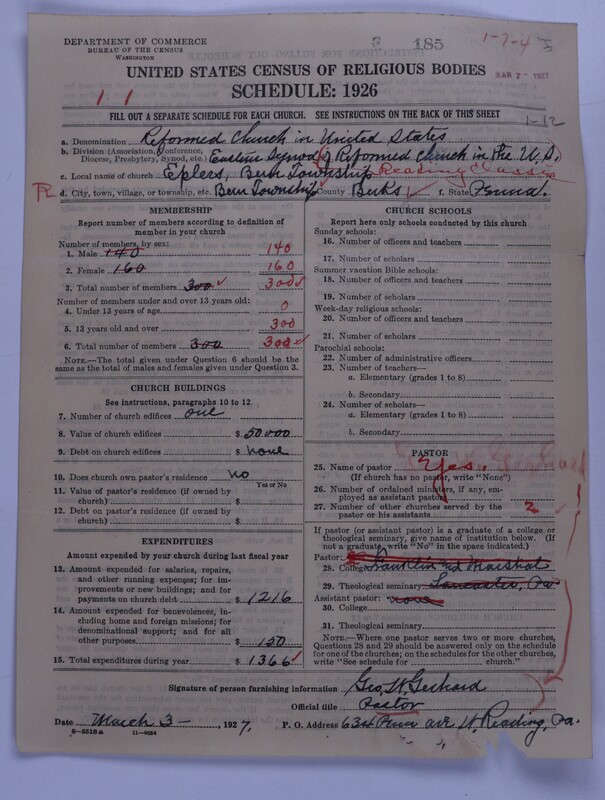 DEPARTMENT OF COMMERCE
BUREAU OF THE CENSUS
WASHINGTON
185
1-7-4
MAR 7 - 1927
UNITED STATES CENSUS OF RELIGIOUS BODIES
SCHEDULE: 1926
1 1
FILL OUT A SEPARATE SCHEDULE FOR EACH CHURCH. SEE INSTRUCTIONS ON THE BACK OF THIS SHEET
1-12
a. Denomination Reformed Church in United States
b. Division (Association, Conference, Diocese, Presbytery, Synod, etc.) Eastern Synod of Reformed Church in the U.S.
c. Local name of church Eplers, Bern Township Reading Classis
d. City, town, village, or township, etc. Bern Township County Berks f. State Penna.
MEMBERSHIP
Report number of members according to definition of member in your church
Number of members, by sex:
1. Male 140 140
2. Female 160 160
3. Total number of members 300 300
Number of members under and over 13 years old:
4. Under 13 years of age 0
5. 13 years old and over 300
6. Total number of members 300 300
NOTE.—The total given under Question 6 should be the same as the total of males and females given under Question 3.
CHURCH BUILDINGS
See instructions, paragraphs 10 to 12
7. Number of church edifices one
8. Value of church edifices $ 50.000
9. Debt on church edifices $ none
10. Does church own pastor's residence? No
Yes or No
11. Value of pastor's residence (if owned by church) $
12. Debt on pastor's residence (if owned by church) $
EXPENDITURES
Amount expended by your church during last fiscal year
13. Amount expended for salaries, repairs, and other running expenses; for improvements or new buildings; and for payments on church debt $ 1216
14. Amount expended for benevolences, including home and foreign missions; for denominational support; and for all other purposes $ 150
15. Total expenditures during year $ 1366
CHURCH SCHOOLS
Report here only schools conducted by this church
Sunday schools:
16. Number of officers and teachers
17. Number of scholars
Summer vacation Bible schools:
18. Number of officers and teachers
19. Number of scholars
Week-day religious schools:
20. Number of officers and teachers
21. Number of scholars
Parochial schools:
22. Number of administrative officers
23. Number of teachers—
a. Elementary (grades 1 to 8)
b. Secondary
24. Number of scholars—
a. Elementary (grades 1 to 8)
b. Secondary
PASTOR
25. Name of pastor Yes. Gerhard
(If church has no pastor, write "None")
26. Number of ordained ministers, if any, employed as assistant pastors
27. Number of other churches served by the pastor or his assistants 2
If pastor (or assistant pastor) is a graduate of a college or theological seminary, give name of institution below. (If not a graduate, write "No" in the space indicated.)
Pastor:
28. College Franklin and Marshal
29. Theological seminary Lancaster, Pa.
Assistant pastor: none
30. College
31. Theological seminary
NOTE.—Where one pastor serves two or more churches, Questions 28 and 29 should be answered only on the schedule for one of the churches; on the schedules for the other churches, write "See schedule for church."
Signature of person furnishing information Geo. W. Gerhard
Official title Pastor
Date March 3 - , 1927. P. O. Address 634 Penn ave W. Reading, Pa.
8-5518a 11-9084